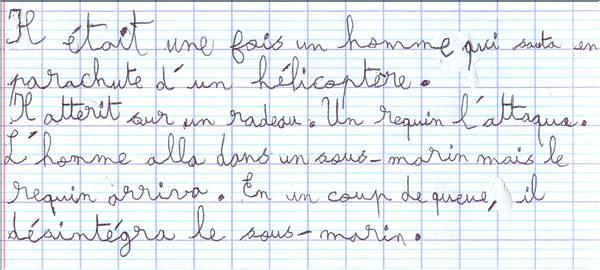 Il était une fois un homme qui sauta en
parachute d'un hélicoptère.
Il atterit sur un radeau. Un requin l'attaqua.
L'homme alla dans un sous-marin mais le
requin arriva. En un coup de queue, il
désintégra le sous-marin.